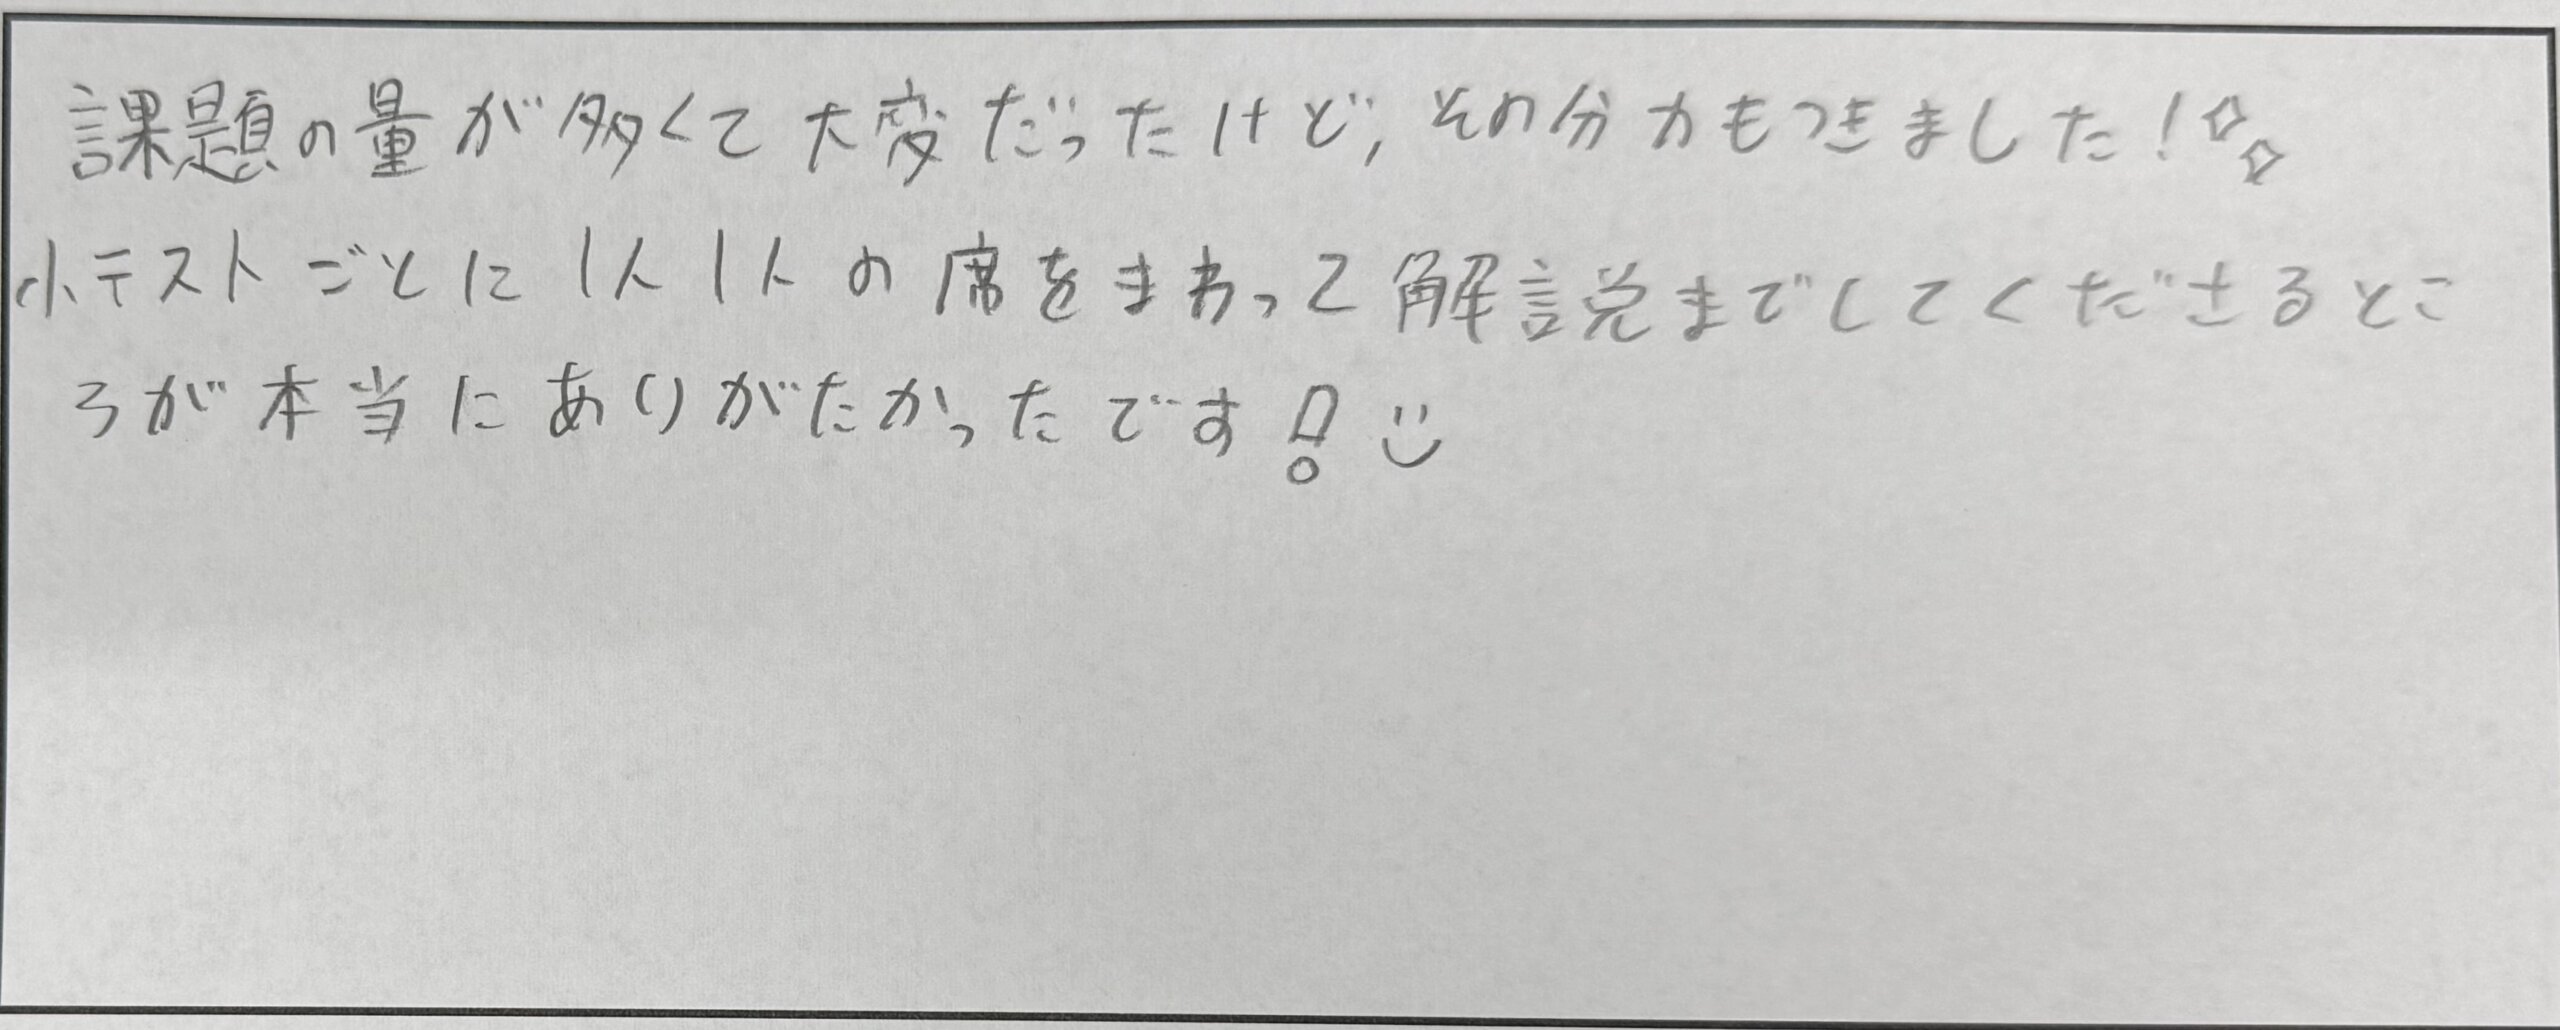 課題の量が多くて大変だったけど,その分力もつきました!✧✧
小テストごとに1人1人の席をまわって解説までしてくださるとこ
ろが本当にありがたかったです!